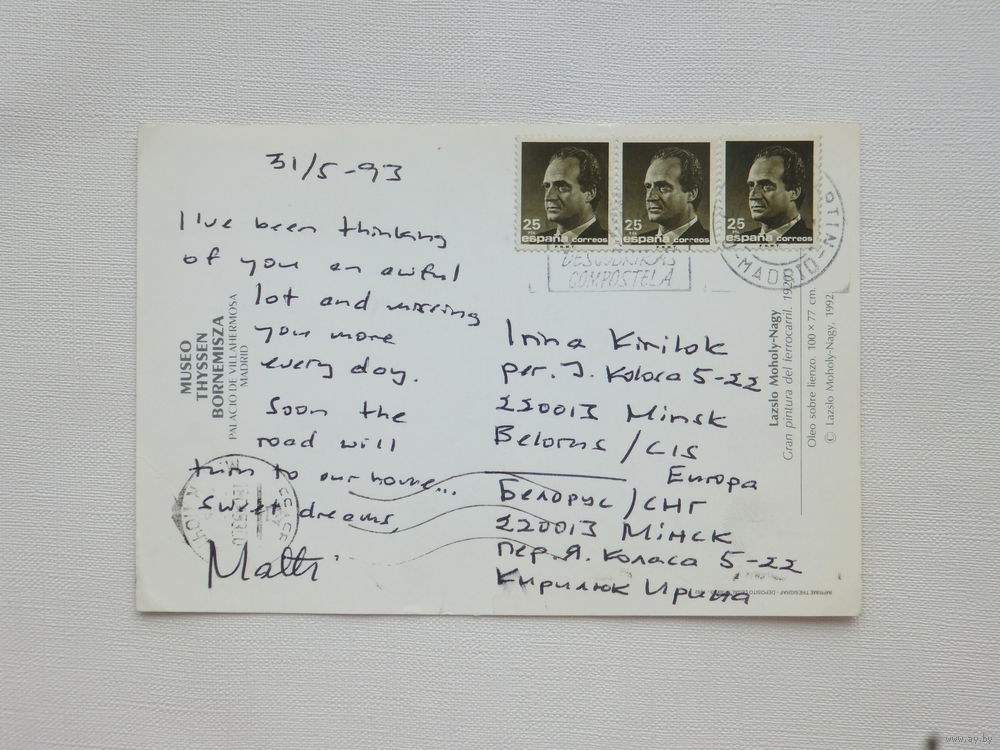 31/5-93
I've been thinking
of you an awful
lot and missing
you more
every day.
Soon the
road will
turn to our home...
Sweet dreams,
Matti
MUSEO
THYSSEN
BORNEMISZA
PALACIO DE VILLAHERMOSA
MADRID
25
españa correos
25
españa correos
25
españa correos
DESCUBRIRAS
COMPOSTELA
MADRID
Irina Kirilok
per. J. Kolasa 5-22
220013 Minsk
Belorus/CIS
Europa
Белорус/СНГ
220013 Мінск
пер. Я. Коласа 5-22
Кирилюк Ирина
Lazslo Moholy-Nagy
Gran pintura del ferrocarril. 1920
Oleo sobre lienzo. 100 x 77 cm.
© Lazslo Moholy-Nagy, 1992
www.ay.by